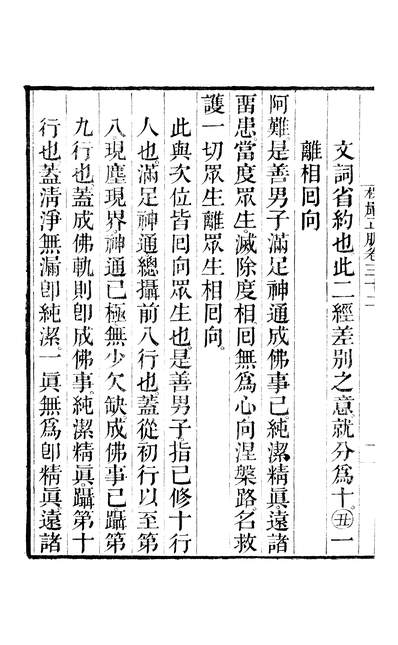 文詞省約也此二經差別之意就分爲十㊄一
離相回向
阿難是善男子滿足神通成佛事已純潔精眞遠諸
留患當度眾生滅除度相回無爲心向涅槃路名救
護一切眾生離眾生相回向
此與次位皆回向眾生也是善男子指已修十行
人也滿足神通總攝前八行也蓋從初行以至第
八現塵現界神通已極無少欠缺成佛事已躡第
九行也蓋成佛軌則卽成佛事純潔精眞躡第十
行也蓋淸淨無漏卽純潔一眞無爲卽精眞遠諸